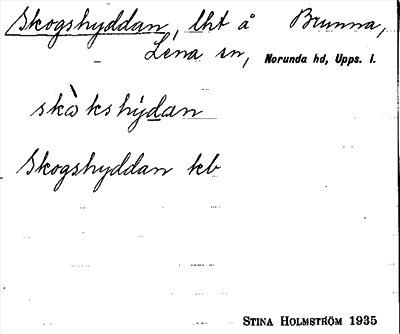 Skogshyddan, lht å Brunna,
Lena sn, Norunda hd, Upps. l.
skò̀kshýdan
Skogshyddan kb
STINA HOLMSTRÖM 1935